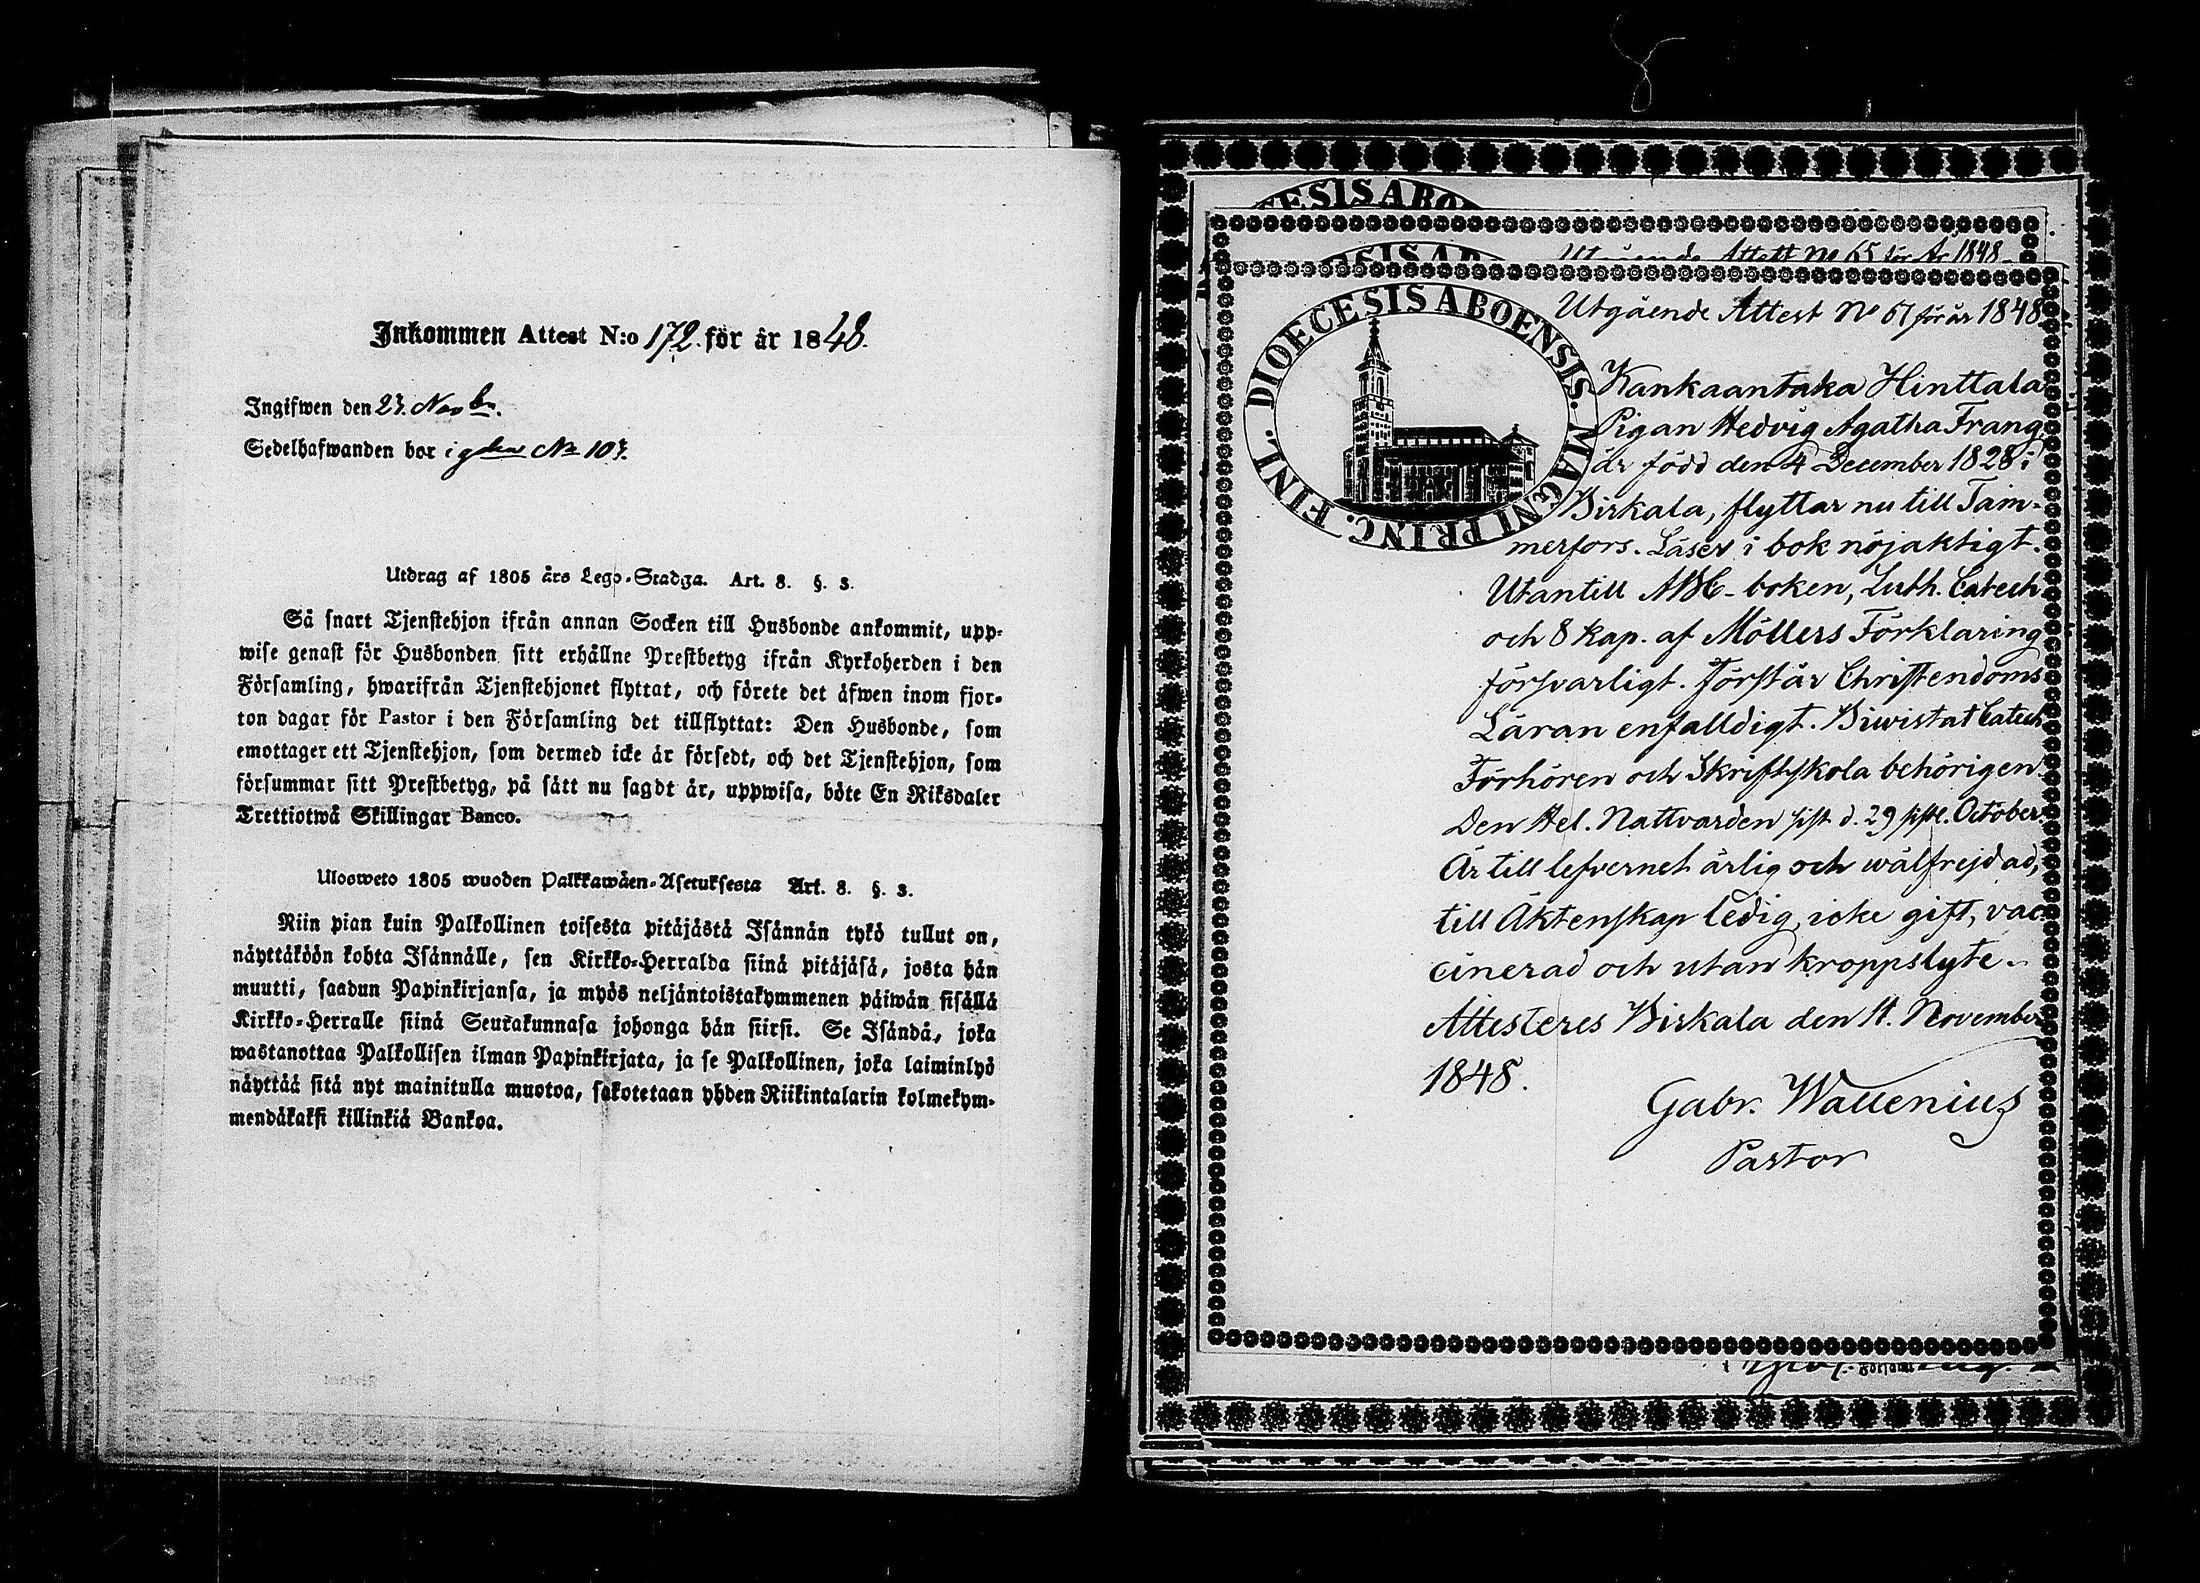 Inkommen Attest N:o 172. för år 1848.
Ingifwen den 23. Novbr.
Sedelhafwanden bor i gden No 107.
Utdrag af 1805 års Lego-Stadga. Art. 8. §. 3.
Så snart Tjenstehjon ifrån annan Socken till Husbonde ankommit, upp-
wise genast för Husbonden sitt erhållne Prestbetyg ifrån Kyrkoherden i den
Församling, hwarifrån Tjenstehjonet flyttat, och förete det äfwen inom fjor-
ton dagar för Pastor i den Församling det tillflyttat: Den Husbonde, som
emottager ett Tjenstehjon, som dermed icke är försedt, och det Tjenstehjon, som
försummar sitt Prestbetyg, på sätt nu sagdt är, uppwisa, böte En Riksdaler
Trettiotwå Skillingar Banco.
Ulosweto 1805 wuoden Palkkawäen-Asetuksesta Art. 8. §. 3.
Niin pian kuin Palkollinen toisesta pitäjästä Isännän tykö tullut on,
näyttäköön kohta Isännälle, sen Kirkko-Herralda siinä pitäjäsä, josta hän
muutti, saadun Papinkirjansa, ja myös neljäntoistakymmenen päiwän sisällä
Kirkko-Herralle siinä Seurakunnasa johonga hän siirsi. Se Isändä, joka
wastanottaa Palkollisen ilman Papinkirjata, ja se Palkollinen, joka laiminlyö
näyttää sitä nyt mainitulla muotoa, sakotetaan yhden Riikintalarin kolmekym-
mendäkaksi killinkiä Bankoa.
ESIS ABO
Attest No 65 för År 1848
DIOECESIS ABOENSIS. MAGNI PRINC. FINL.
Utgående Attest No 61 för år 1848
Kankaantaka Hinttala
Pigan Hedvig Agatha Frang
är född den 4 December 1828 i
Birkala, flyttar nu till Tam-
merfors. Läser i bok nöjaktigt.
Utantill ABC-boken, Luth. Catech.
och 8 kap. af Möllers Förklaring
försvarligt. Förstår Christendoms
Läran enfalldigt. Biwistat Catech
Förhören och Skriftskola behörigen.
Den Hel. Nattvarden sist d. 29 sistl. October.
Är till lefvernet ärlig och wälfrejdad,
till Äktenskap ledig, icke gift, vac-
cinerad och utan kroppslyte.
Attesteres Birkala den 11. November
1848.
Gabr. Wallenius
Pastor